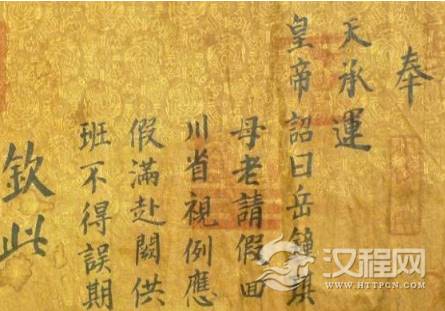 奉
天承運
皇帝詔曰岳鐘琪
母老請假回
川省視例應
假滿赴闕供
班不得誤期
欽此
汉程网
WWW.HTTPCN.COM